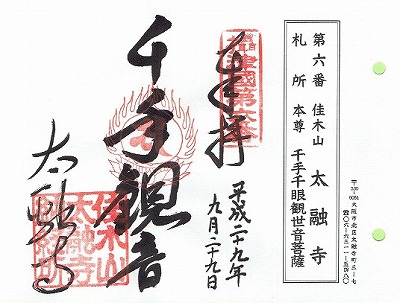 第六番 佳木山 太融寺
札所 本尊 千手千眼観世音菩薩
〒530-0051 大阪市北区太融寺町三-七
☎〇六-六三一一-五四八〇
奉拝
平成二十九年
九月二十九日
千手観音
太融寺
佳木山
太融寺